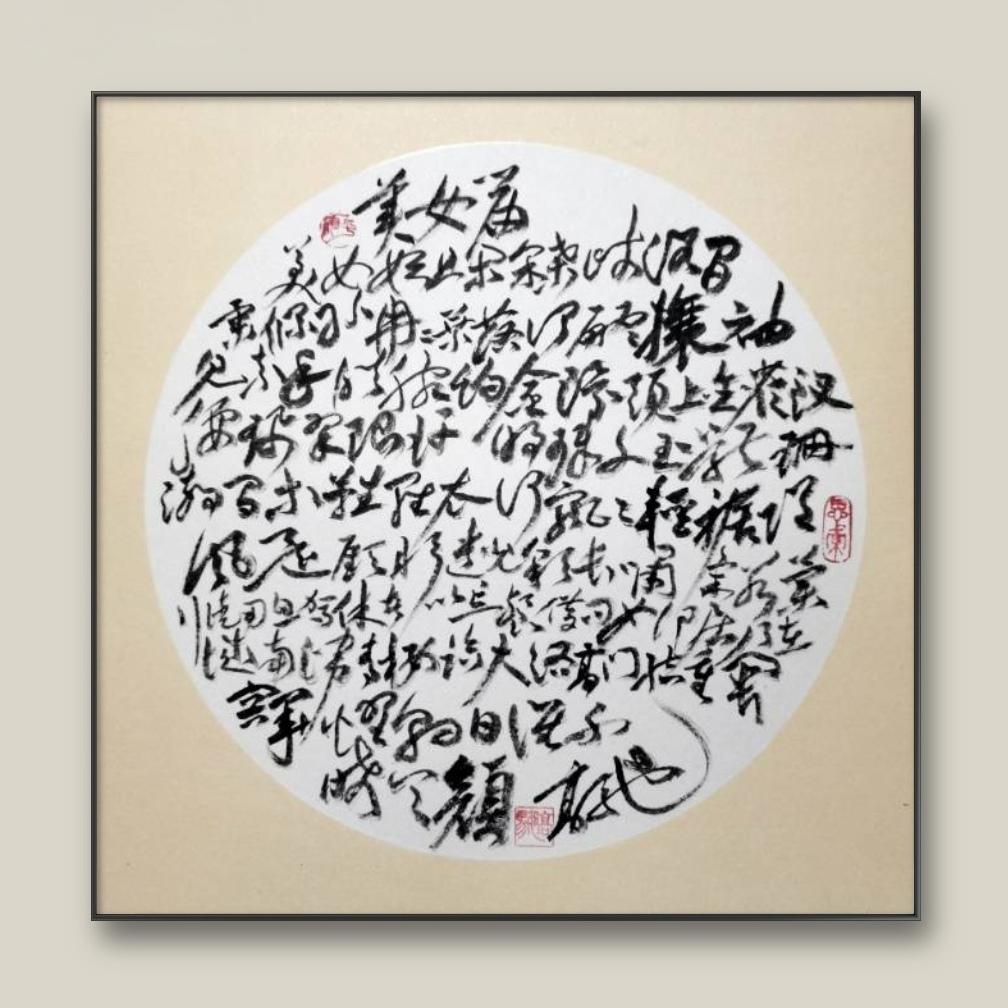 美女篇
美女妖且闲采桑歧路间
柔条纷冉冉落叶何翩翩攘袖
见素手皓腕约金环头上金爵钗
腰佩翠琅玕明珠交玉体珊
瑚间木难罗衣何飘飘轻裾随
风还顾盼遗光彩长啸气若兰
行徒用息驾休者以忘餐借问女何居乃在
城南端青楼临大路高门结重关
容华耀朝日谁不
希令颜